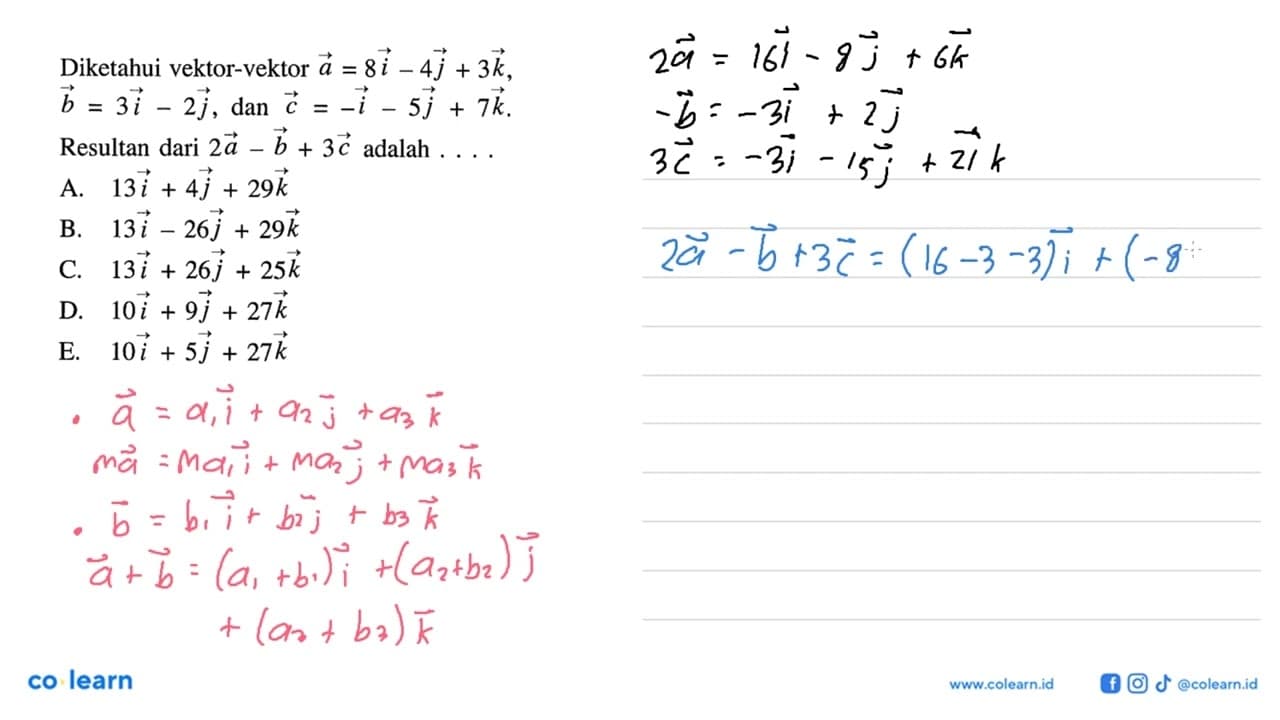 Diketahui vektor-vektor a⃗ = 8i⃗ – 4j⃗ + 3k⃗,
b⃗ = 3i⃗ – 2j⃗, dan c⃗ = –i⃗ – 5j⃗ + 7k⃗.
Resultan dari 2a⃗ – b⃗ + 3c⃗ adalah . . . .
A. 13i⃗ + 4j⃗ + 29k⃗
B. 13i⃗ – 26j⃗ + 29k⃗
C. 13i⃗ + 26j⃗ + 25k⃗
D. 10i⃗ + 9j⃗ + 27k⃗
E. 10i⃗ + 5j⃗ + 27k⃗
• a⃗ = a₁i⃗ + a₂j⃗ + a₃k⃗
ma⃗ = ma₁i⃗ + ma₂j⃗ + ma₃k⃗
• b⃗ = b₁i⃗ + b₂j⃗ + b₃k⃗
a⃗ + b⃗ = (a₁ + b₁)i⃗ + (a₂ + b₂)j⃗
+ (a₃ + b₃)k⃗
2a⃗ = 16i⃗ – 8j⃗ + 6k⃗
–b⃗ = –3i⃗ + 2j⃗
3c⃗ = –3i⃗ – 15j⃗ + 21k⃗
2a⃗ – b⃗ + 3c⃗ = (16 – 3 – 3)i⃗ + (–8 +
co learn
www.colearn.id
@colearn.id